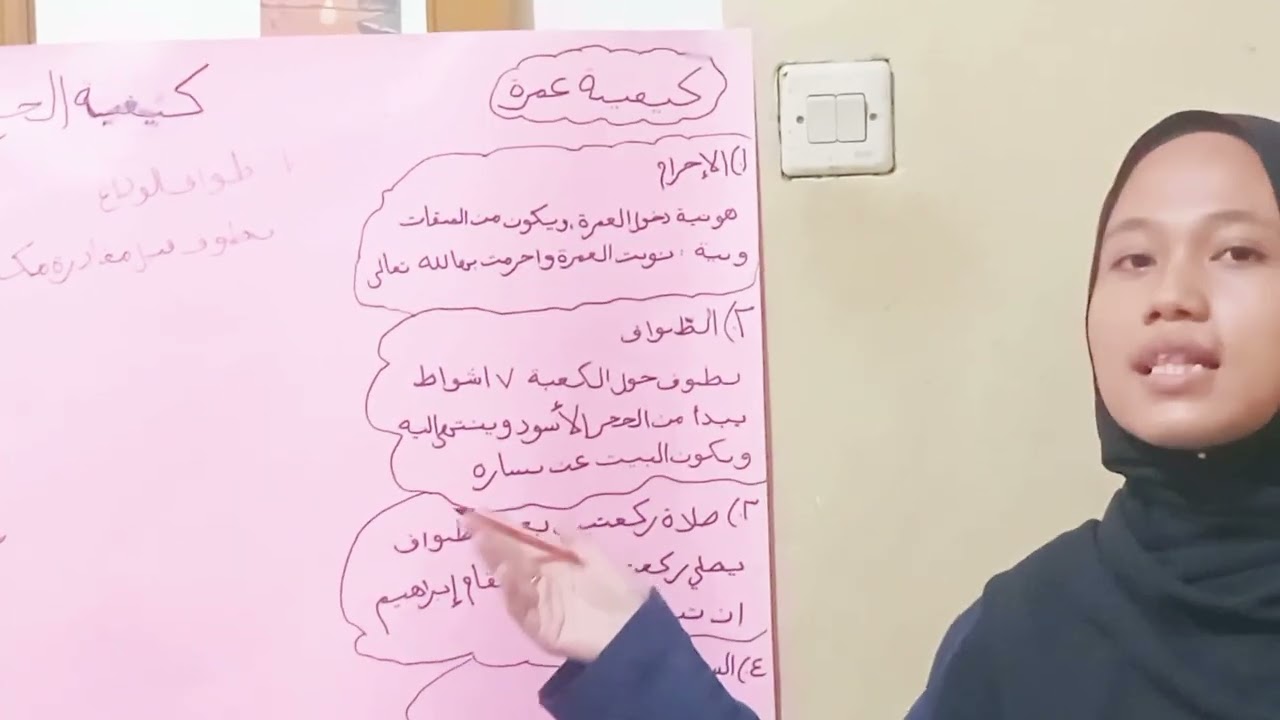 كيفية عمرة
١) الإحرام
هو نية دخول العمرة، ويكون من الميقات
ونية : نويت العمرة واحرمت بها لله تعالى
٢) الطّواف
يطوف حول الكعبة ٧ اشواط
يبدأ من الحجر الأسود وينتهي إليه
ويكون البيت عن يساره
٣) صلاة ركعت طواف
يصلي ركع إبراهيم
ان
٤)
كيفية الح
١ طواف الوداع
يطوف قبل مغادرة مك